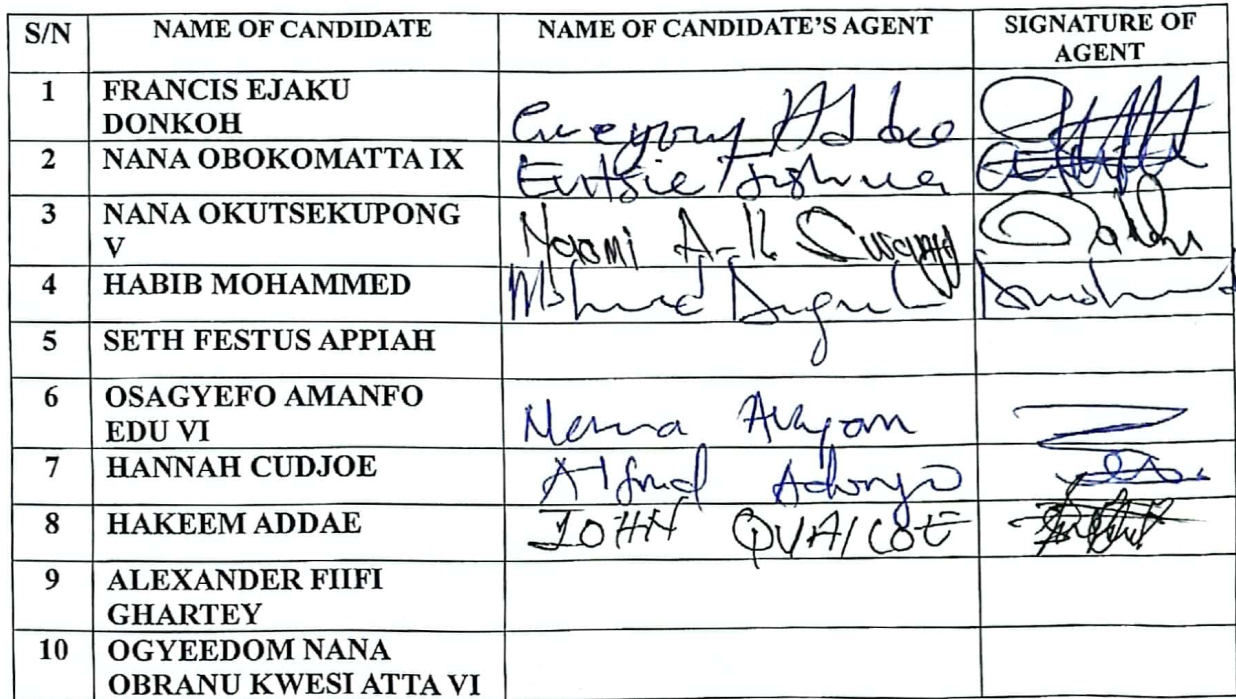 S/N NAME OF CANDIDATE NAME OF CANDIDATE'S AGENT SIGNATURE OF AGENT
1 FRANCIS EJAKU DONKOH Addo
2 NANA OBOKOMATTA IX Joshua
3 NANA OKUTSEKUPONG V Naomi A-K
4 HABIB MOHAMMED
5 SETH FESTUS APPIAH
6 OSAGYEFO AMANFO EDU VI Nana
7 HANNAH CUDJOE Alfred Adongo
8 HAKEEM ADDAE JOHN QUAICOE
9 ALEXANDER FIIFI GHARTEY
10 OGYEEDOM NANA OBRANU KWESI ATTA VI